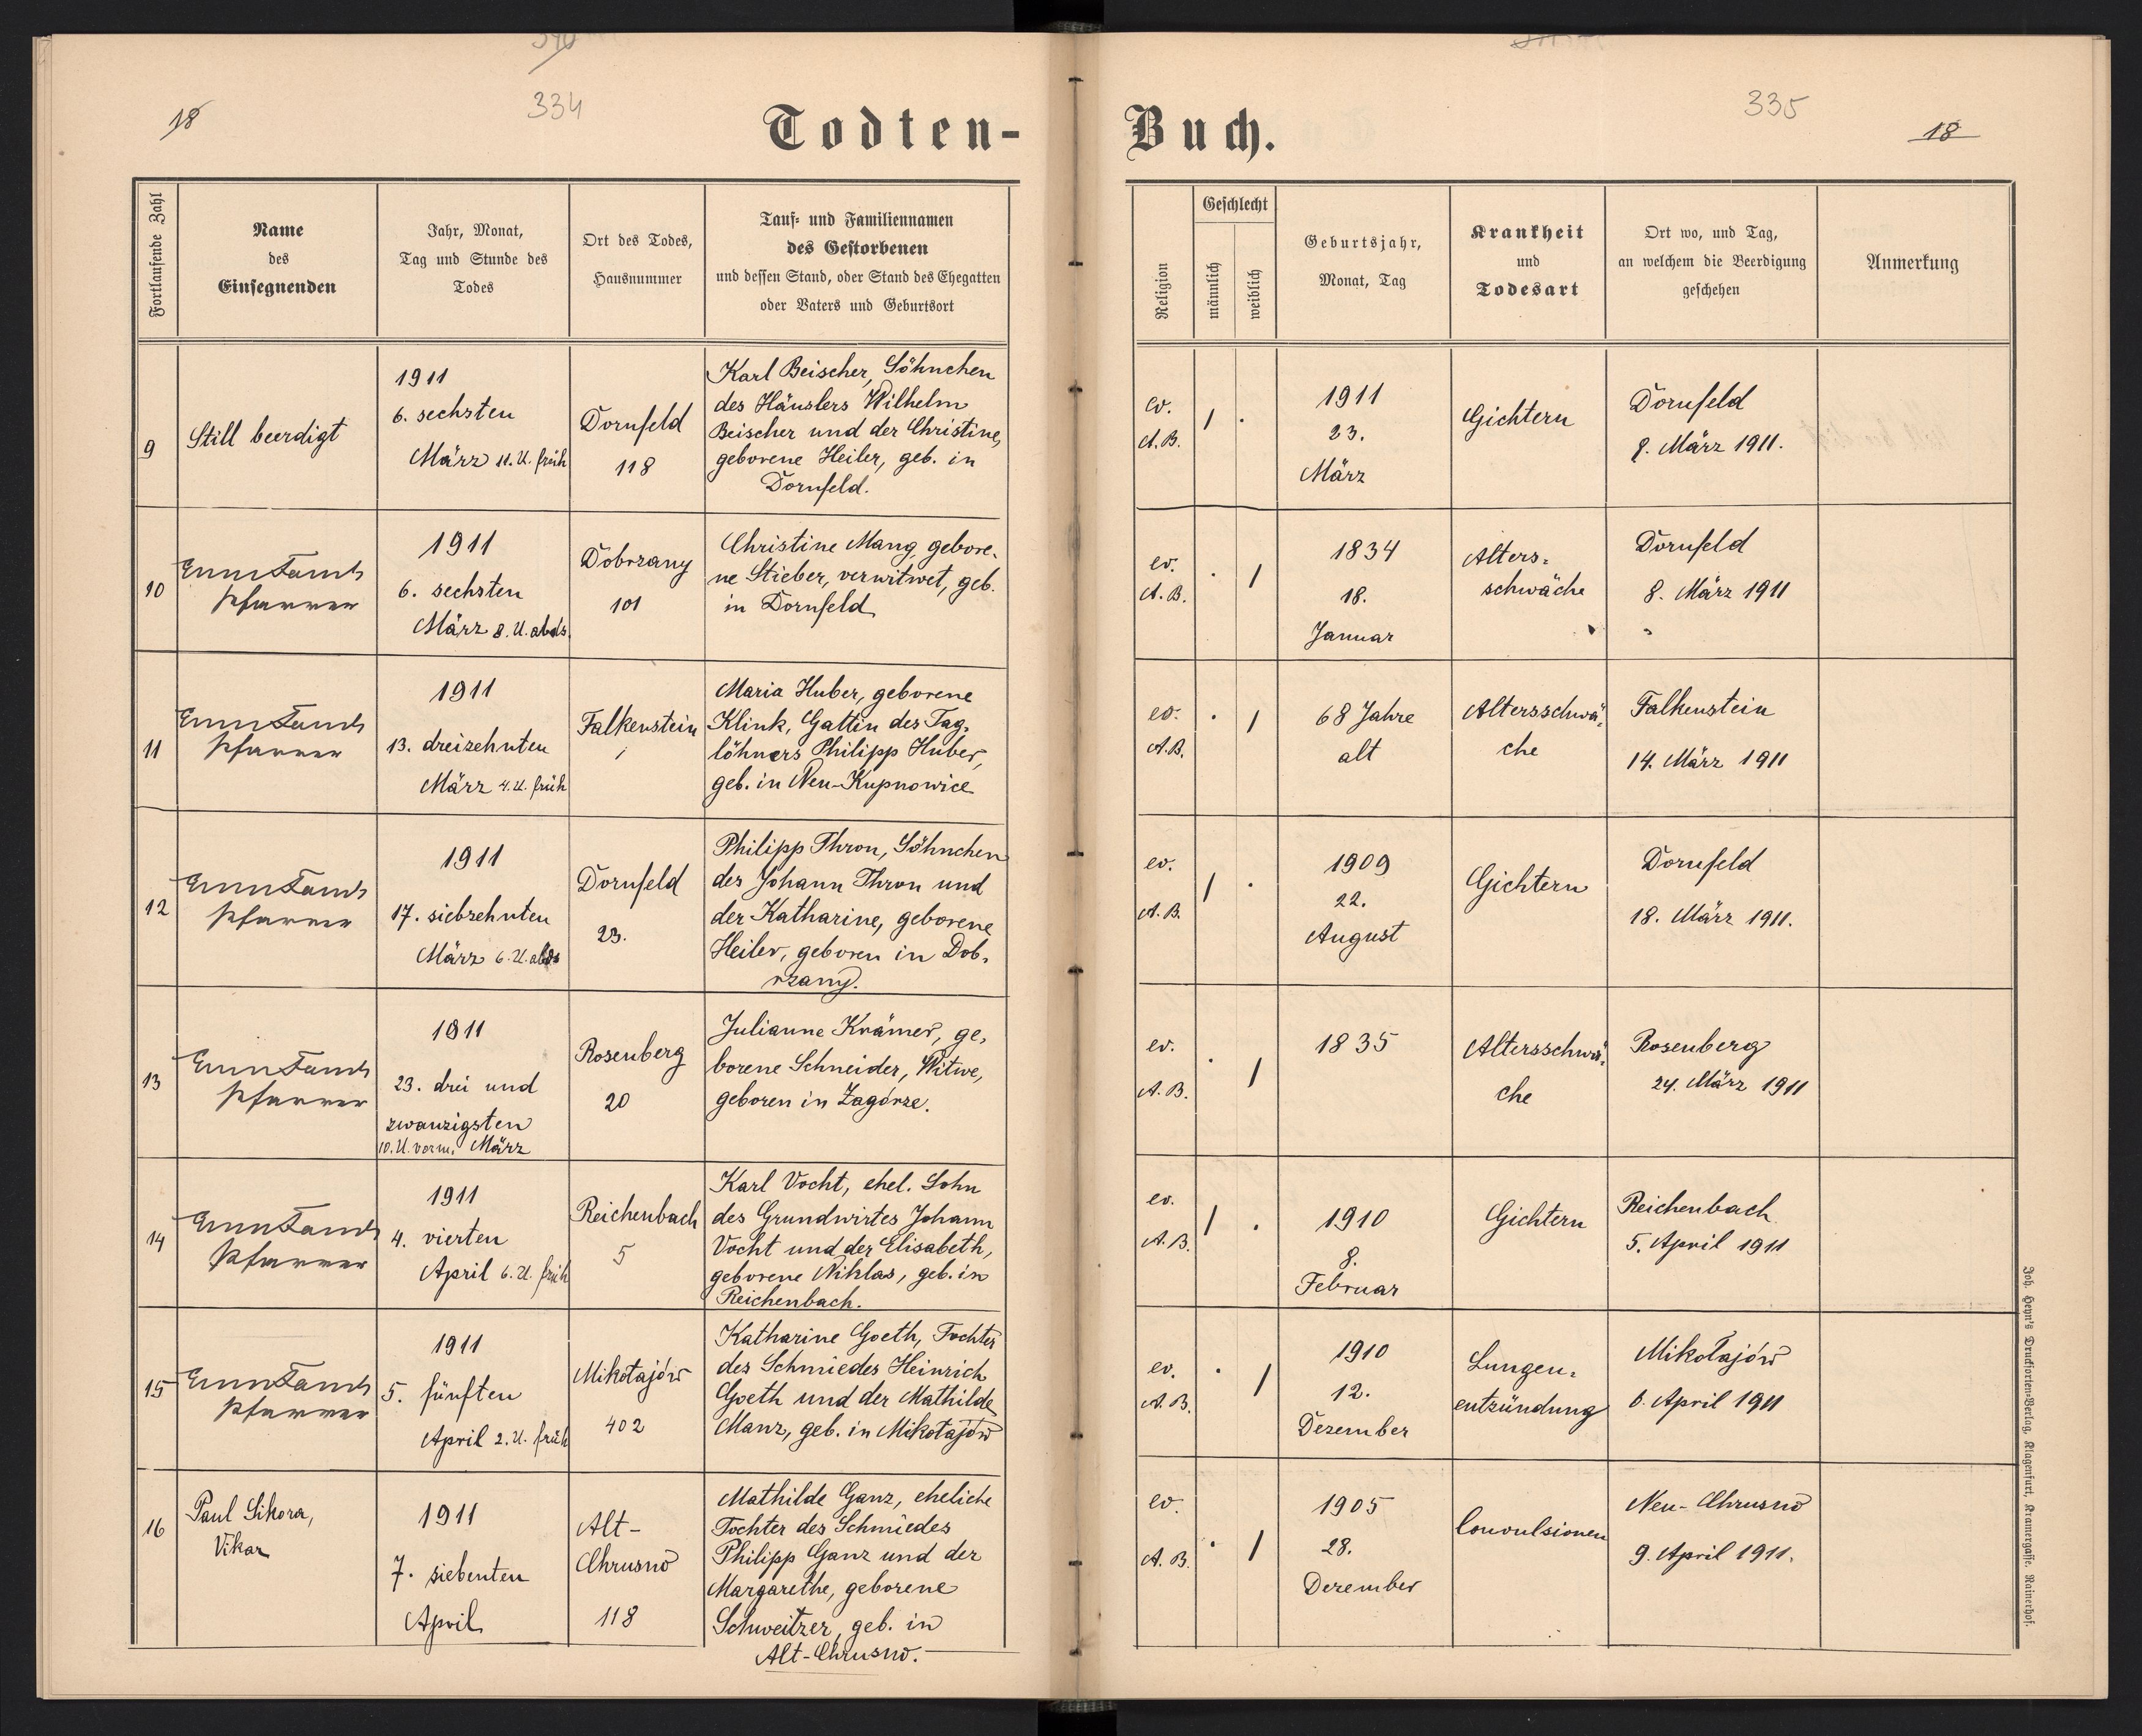 334
18
Todten-
Fortlaufende Zahl
Name
des
Einsegnenden
Jahr, Monat,
Tag und Stunde des
Todes
Ort des Todes,
Hausnummer
Tauf- und Familiennamen
des Gestorbenen
und dessen Stand, oder Stand des Ehegatten
oder Vaters und Geburtsort
9
Still beerdigt
1911
6. sechsten
März 11. U. früh
Dornfeld
118
Karl Beischer, Söhnchen
des Häuslers Wilhelm
Beischer und der Christine,
geborene Heiler, geb. in
Dornfeld.
10
Pfarrer
1911
6. sechsten
März 8. U. abds.
Dobrzany
101
Christine Mang, gebore-
ne Stieber, verwitwet, geb.
in Dornfeld
11
Pfarrer
1911
13. dreizehnten
März 4. U. früh
Falkenstein
Maria Huber, geborene
Klink, Gattin des Tag-
löhners Philipp Huber,
geb. in Neu-Kupnowice
12
Pfarrer
1911
17. siebzehnten
März 6. U. abds
Dornfeld
23.
Philipp Thron, Söhnchen
des Johann Thron und
der Katharine, geborene
Heiler, geboren in Dob-
rzany.
13
Pfarrer
1911
23. drei und
zwanzigsten
10. U. vorm. März
Rosenberg
20
Julianne Krämer, ge-
borene Schneider, Witwe,
geboren in Zagórze.
14
Pfarrer
1911
4. vierten
April 6. U. früh
Reichenbach
5
Karl Vocht, ehel. Sohn
des Grundwirtes Johann
Vocht und der Elisabeth,
geborene Niklas, geb. in
Reichenbach.
15
Pfarrer
1911
5. fünften
April 2. U. früh
Mikołajów
402
Katharine Goeth, Tochter
des Schmiedes Heinrich
Goeth und der Mathilde
Manz, geb. in Mikołajów
16
Paul Sikora,
Vikar
1911
7. siebenten
April
Alt-
Chrusno
118
Mathilde Ganz, eheliche
Tochter des Schmiedes
Philipp Ganz und der
Margarethe, geborene
Schweitzer, geb. in
Alt-Chrusno.
335
18
Buch.
Religion
Geschlecht
männlich
weiblich
Geburtsjahr,
Monat, Tag
Krankheit
und
Todesart
Ort wo, und Tag,
an welchem die Beerdigung
geschehen
Anmerkung
ev.
A. B.
1911
23.
März
Gichtern
Dornfeld
8. März 1911.
ev.
A. B.
1834
18.
Januar
Alters-
schwäche
Dornfeld
8. März 1911
ev.
A. B.
68 Jahre
alt
Altersschwä-
che
Falkenstein
14. März 1911
ev.
A. B.
1909
22.
August
Gichtern
Dornfeld
18. März 1911.
ev.
A. B.
1835
Altersschwä-
che
Rosenberg
24. März 1911
ev.
A. B.
1910
8.
Februar
Gichtern
Reichenbach
5. April 1911
ev.
A. B.
1910
12.
Dezember
Lungen-
entzündung
Mikołajów
6. April 1911
ev.
A. B.
1905
28.
Dezember
Convulsionen
Neu-Chrusno
9. April 1911.
Joh. Heyn's Drucksorten-Verlag, Klagenfurt, Kramergasse, Rainerhof.